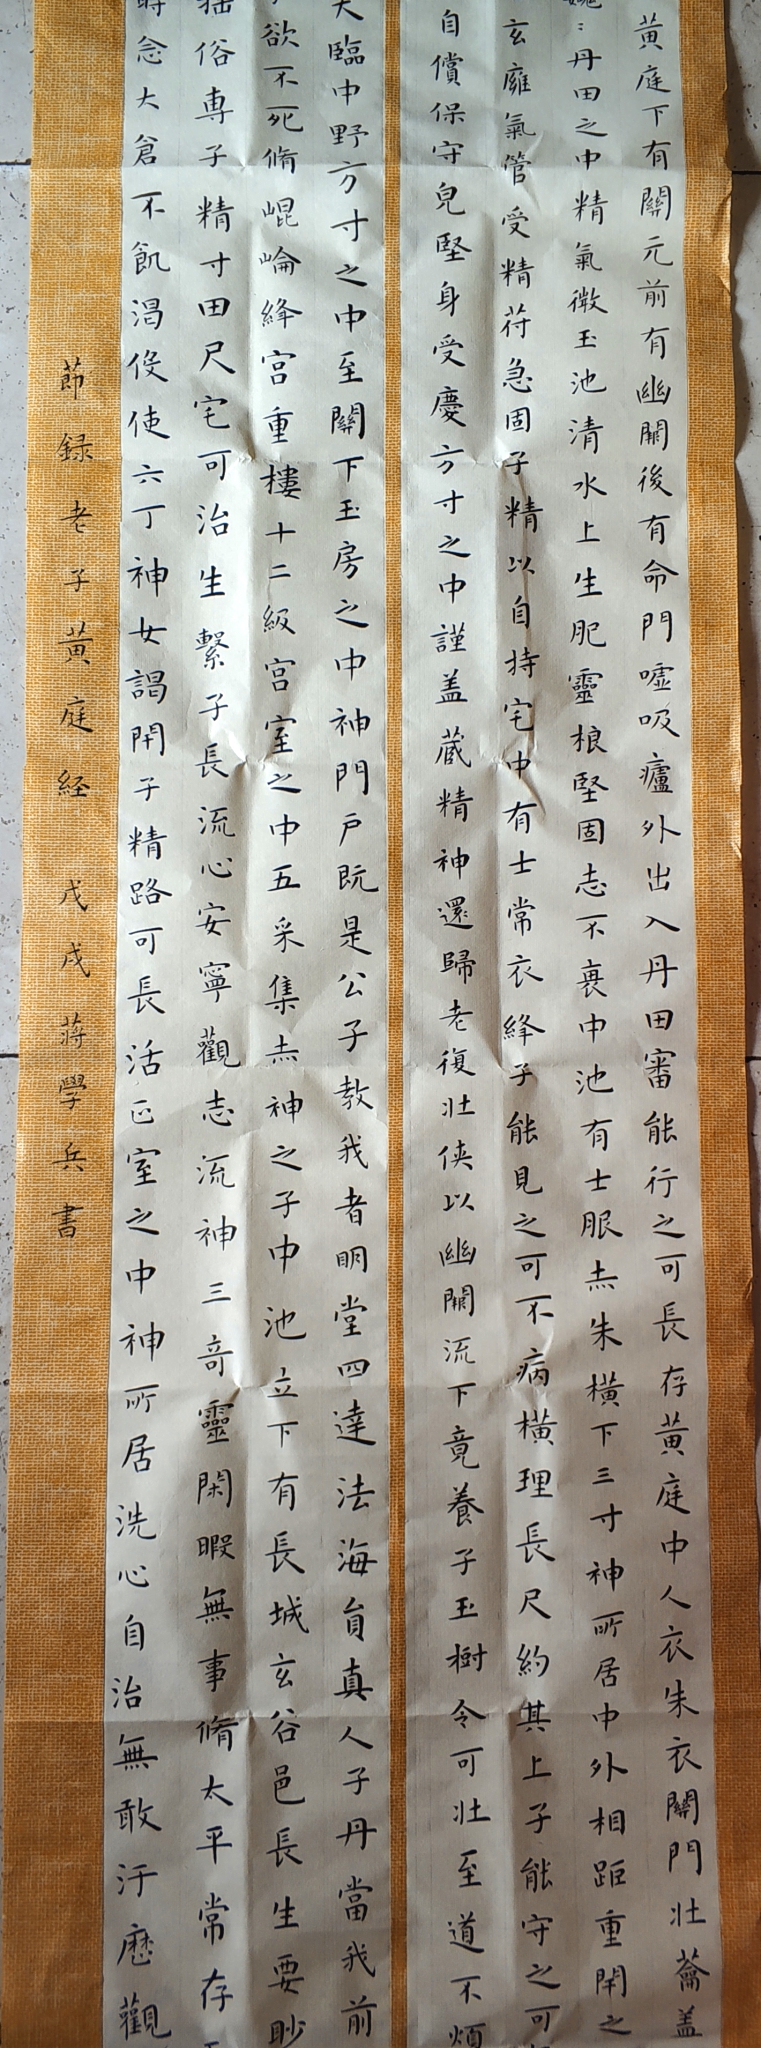 黃庭下有關元前有幽闕後有命門噓吸廬外出入丹田審能行之可長存黃庭中人衣朱衣關門壯蘥盖
丹田之中精氣微玉池清水上生肥靈根堅固志不衰中池有士服赤朱橫下三寸神所居中外相距重閇之
玄廱氣管受精苻急固子精以自持宅中有士常衣絳子能見之可不病橫理長尺約其上子能守之可
自償保守皃堅身受慶方寸之中謹盖藏精神還歸老復壯俠以幽闕流下竟養子玉樹令可壯至道不煩
臨中野方寸之中至關下玉房之中神門戶既是公子教我者明堂四達法海員真人子丹當我前
欲不死脩崐崘絳宮重樓十二級宮室之中五采集赤神之子中池立下有長城玄谷邑長生要眇
俗專子精寸田尺宅可治生繫子長流心安寧觀志流神三奇靈閑暇無事脩太平常存
念大倉不飢渴伇使六丁神女謁閇子精路可長活正室之中神所居洗心自治無敢汙歷觀
莭録老子黃庭経 戊戌蔣學兵書